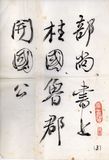 部尚書上
柱國魯郡
開國公